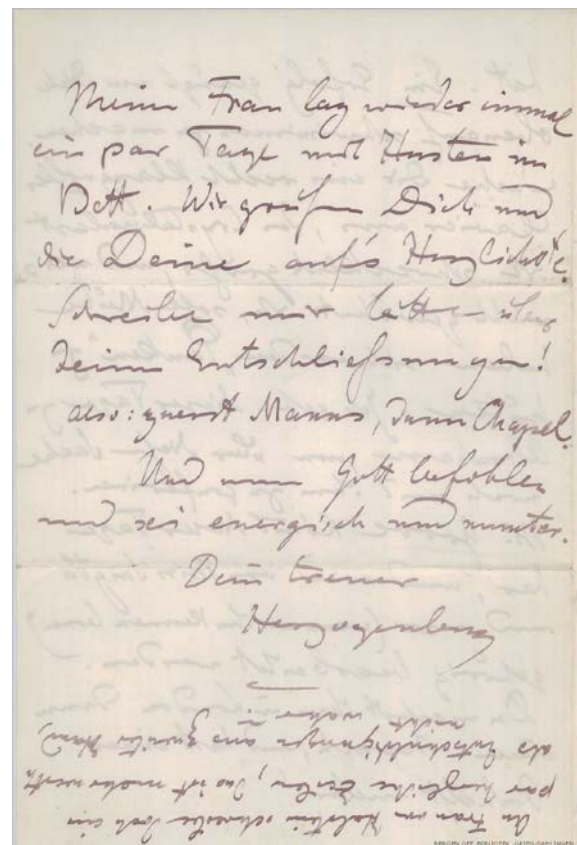 Meine Frau lag wieder einmal
ein par Tage mit Husten im
Bett. Wir grüßen Dich und
die Deine auf's Herzlichste.
Schreibe mir bitte über
Deine Entschließungen!
also: zuerst Manns, dann Chapel.
Und nun Gott befohlen
und sei energisch und munter.
Dein treuer
Herzogenberg
An Frau von Holstein schreibe doch ein
par herzliche Zeilen, das ist mehr werth
als Entschuldigungen aus zweiter Hand,
nicht wahr
BERGEN OFF. BIBLIOTEK. GRIEG-SAMLINGEN